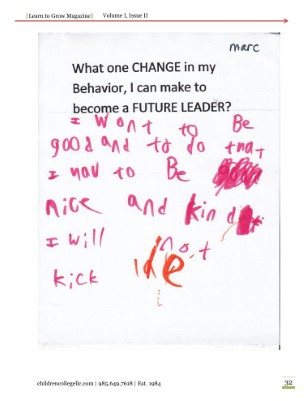 [Learn to Grow Magazine] Volume I, Issue II
marc
What one CHANGE in my
Behavior, I can make to
become a FUTURE LEADER?
I wont to Be
good and to do that
I nav to Be
nice and kind
I will not
kick
childrencollegellc.com | 985.649.7618 | Est. 1984
32